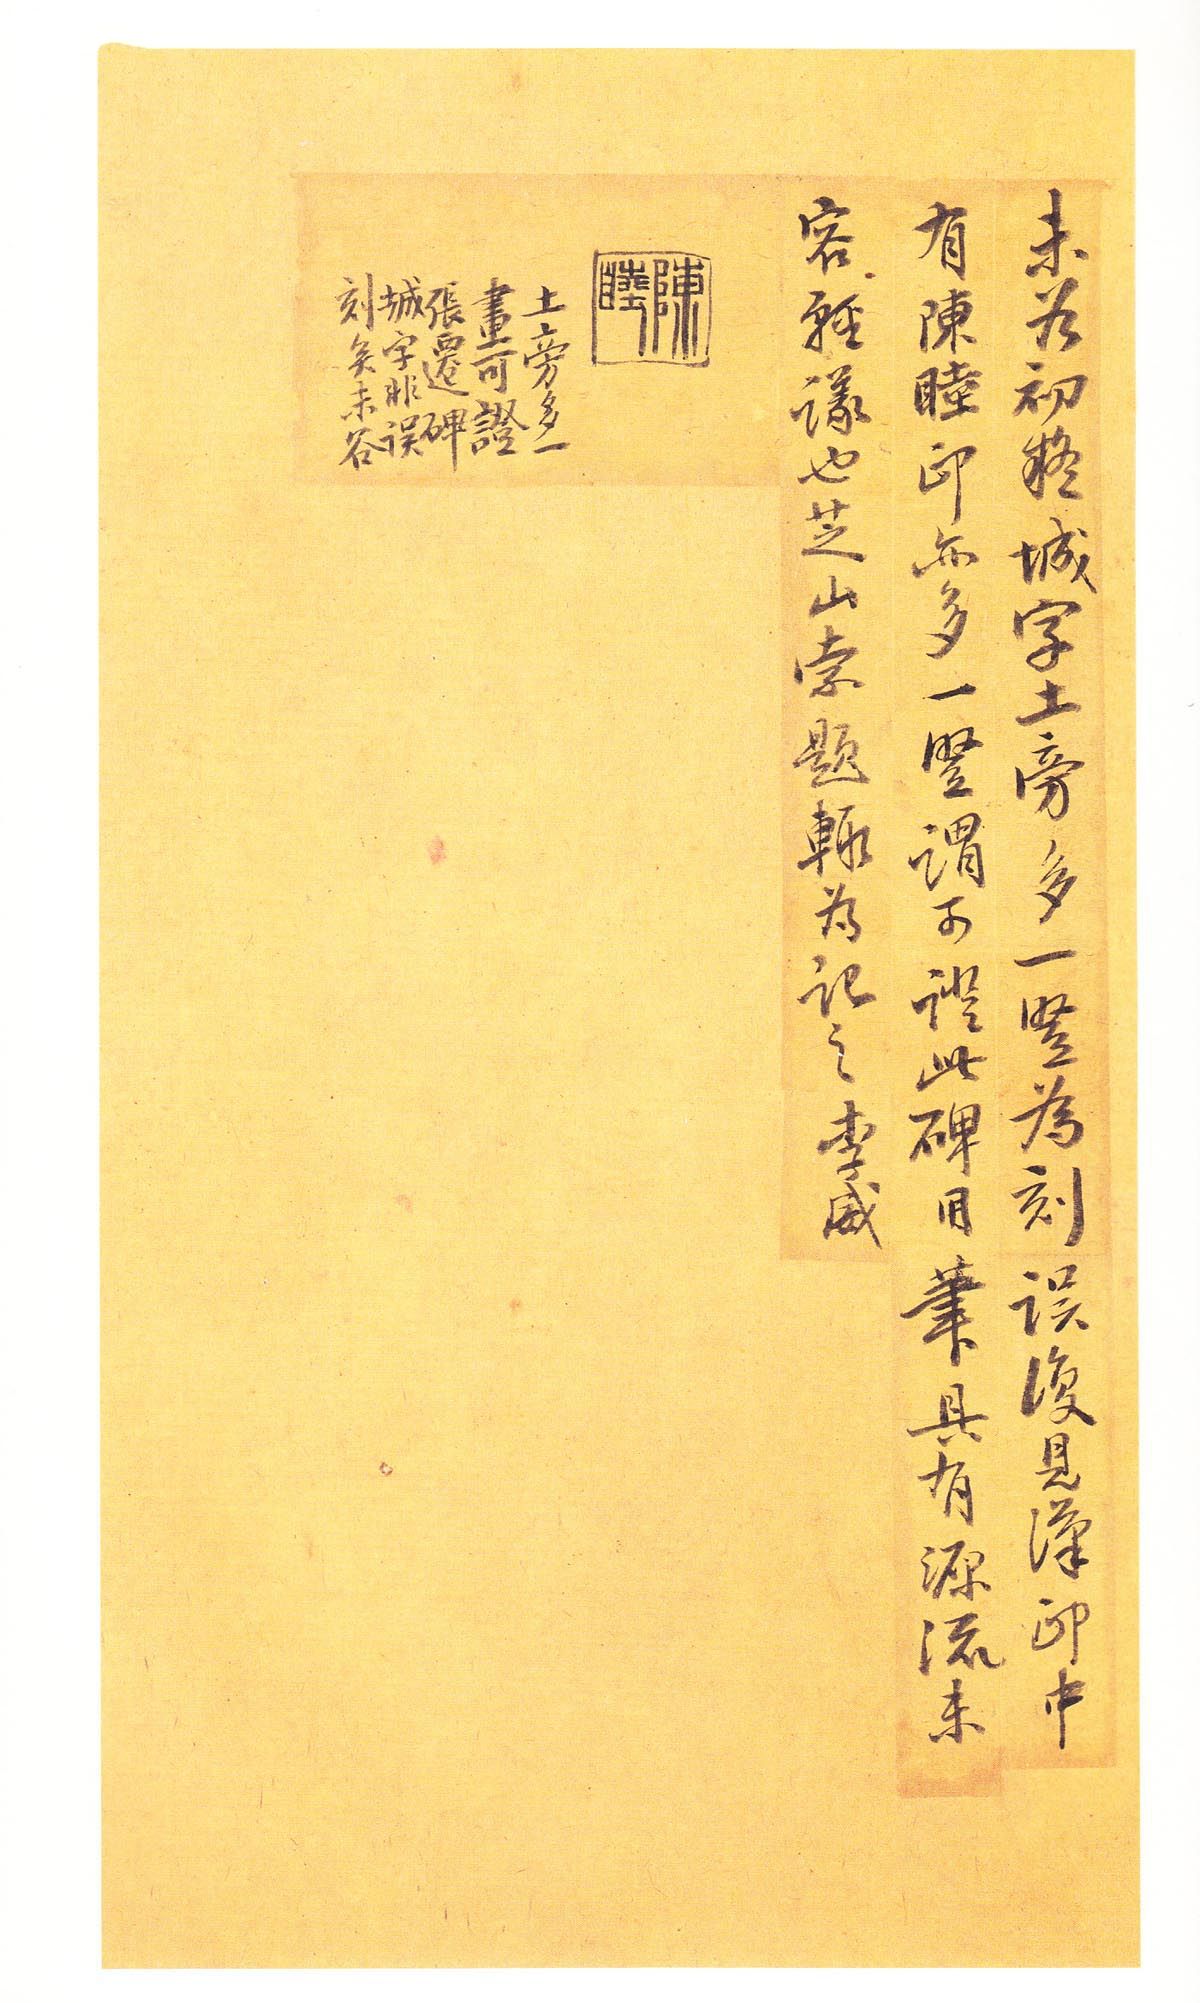 未谷初疑城字土旁多一豎為刻誤復見漢印中
有陳睦印亦多一豎謂可證此碑用筆具有源流未
容輕議也芝山索題輒為記之李威
陳睦
土旁多一
畫可證
張遷碑
城字非误
刻矣未谷